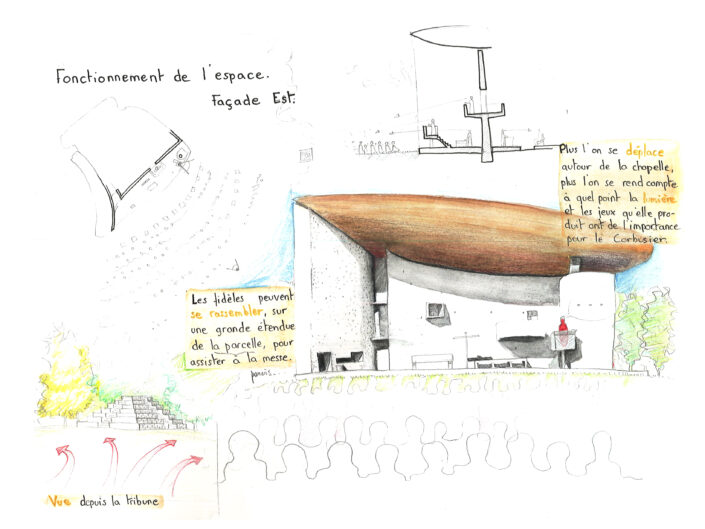 Fonctionnement de l'espace.
Façade Est:
Plus l'on se déplace
autour de la chapelle,
plus l'on se rend compte
à quel point la lumière
et les jeux qu'elle pro-
duit ont de l'importance
pour le Corbusier.
Les fidèles peuvent
se rassembler, sur
une grande étendue
de la parcelle, pour
assister à la messe.
parvis..
Vue depuis la tribune